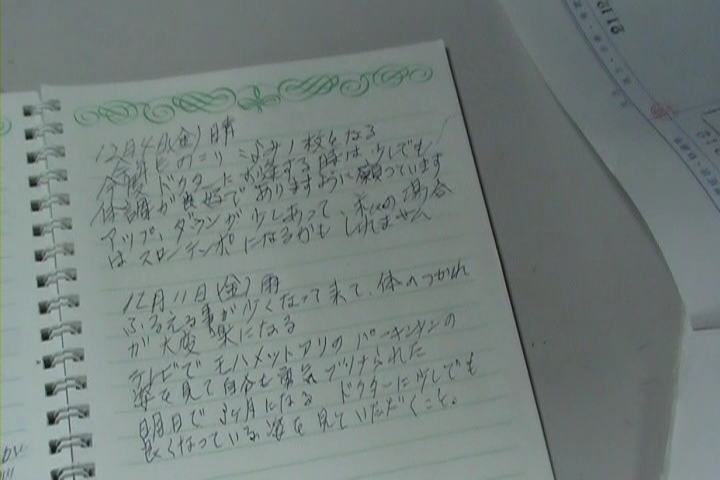 12月4日(金)晴
今年ものこり こよみ1枚となる
今度ドクターにお逢する時は少しでも
体調が良好でありますように願っています
アップ、ダウンが少しあって、私の場合
はスローテンポになるかもしれません
12月11日(金)雨
ふるえる事が少くなって来て、体のつかれ
が大変楽になる
テレビでモハメットアリのパーキンソンの
姿を見て自分も勇気づけられた
明日で3ヶ月になる ドクターに少しでも
良くなっている姿を見ていただくこと。